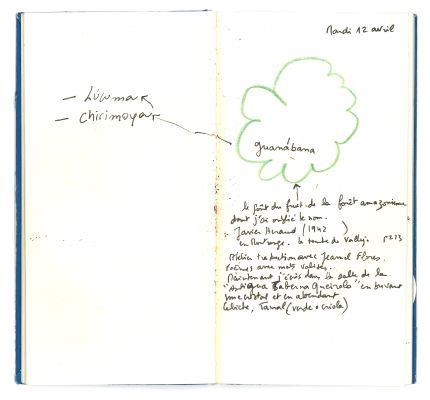 — Lúcumar
— Chirimoyar
Mardi 12 avril
guanábana
le goût du fruit de la forêt amazonienne
dont j'ai oublié le nom.
Javier Heraud (1942 )
en Montrouge. la tombe de Vallejo p 273
traduction avec Jeanne Flores.
Poèmes avec mots valises.
Maintenant j'écris dans la salle de la
"Antigua Taberna Queirolo" en buvant
une et en attendant
Ceviche, Tamal (verde o criolla)